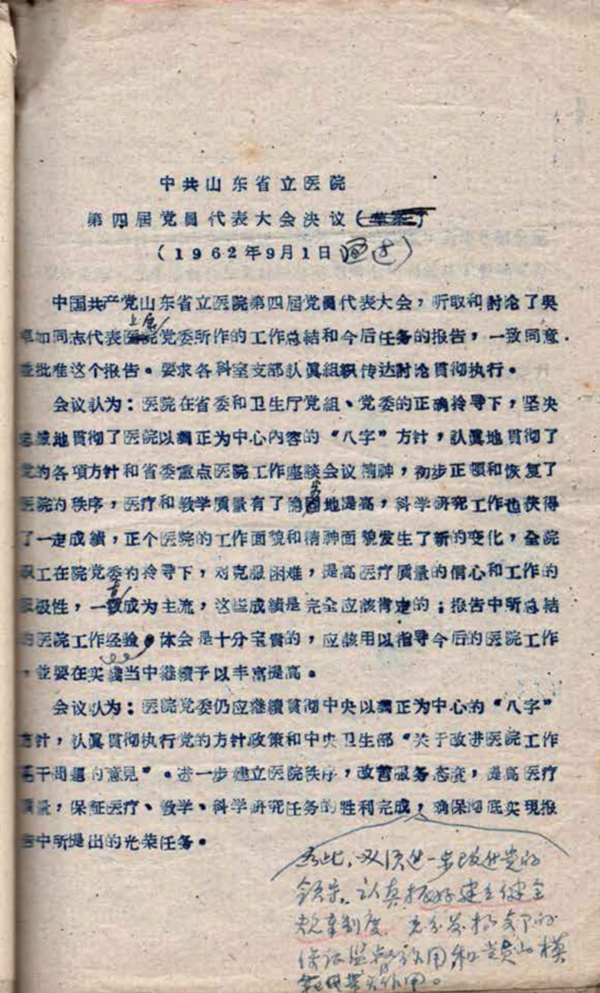 中共山东省立医院
第四届党员代表大会决议（草案）
（1962年9月1日通过）
中国共产党山东省立医院第四届党员代表大会，听取和討论了吳
如同志代表医院党委所作的工作总结和今后任务的报告，一致同意
上届
並批准这个报告。要求各科室支部认眞組織传达討论貫彻执行。
会议认为：医院在省委和卫生厅党组、党委的正确领导下，坚决
地貫彻了医院以調正为中心内容的“八字”方针，认眞地貫彻了
党的各項方针和省委重点医院工作座談会议精神，初步正顿和恢复了
医院的秩序，医疗和教学质量有了地提高，科学研究工作也获得
了一定成績，正个医院的工作面貌和精神面貌发生了新的变化，全院
职工在院党委的领导下，对克服困难，提高医疗质量的信心和工作的
积极性，一致成为主流，这些成績是完全应該肯定的；报告中所总結
的医院工作经验、体会是十分宝貴的，应該用以指导今后的医院工作
，並要在实践当中継續予以丰富提高。
会议认为：医院党委仍应継續貫彻中央以調正为中心的“八字”
方针，认眞貫彻执行党的方针政策和中央卫生部“关于改进医院工作
若干問題的意見”。进一步建立医院秩序，改善服务态度，提高医疗
质量，保証医疗、教学、科学研究任务的胜利完成，确保彻底实現报
告中所提出的光荣任务。
为此，必须进一步改进党的
领导，认真抓好建立健全
规章制度，充分发挥支部的
保证监督作用和党员的模
范带头作用。